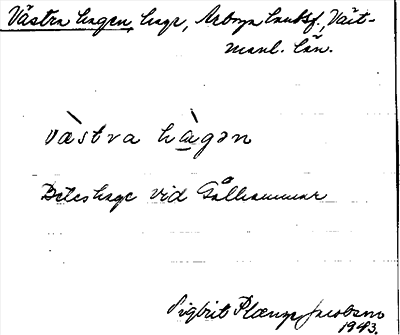 Västra hagen, hage, Arboga landsf., Väst-
manl. län.
västra hàgən
Beteshage vid Gålhammar
Sigbrit Plænge Jacobson
1943.